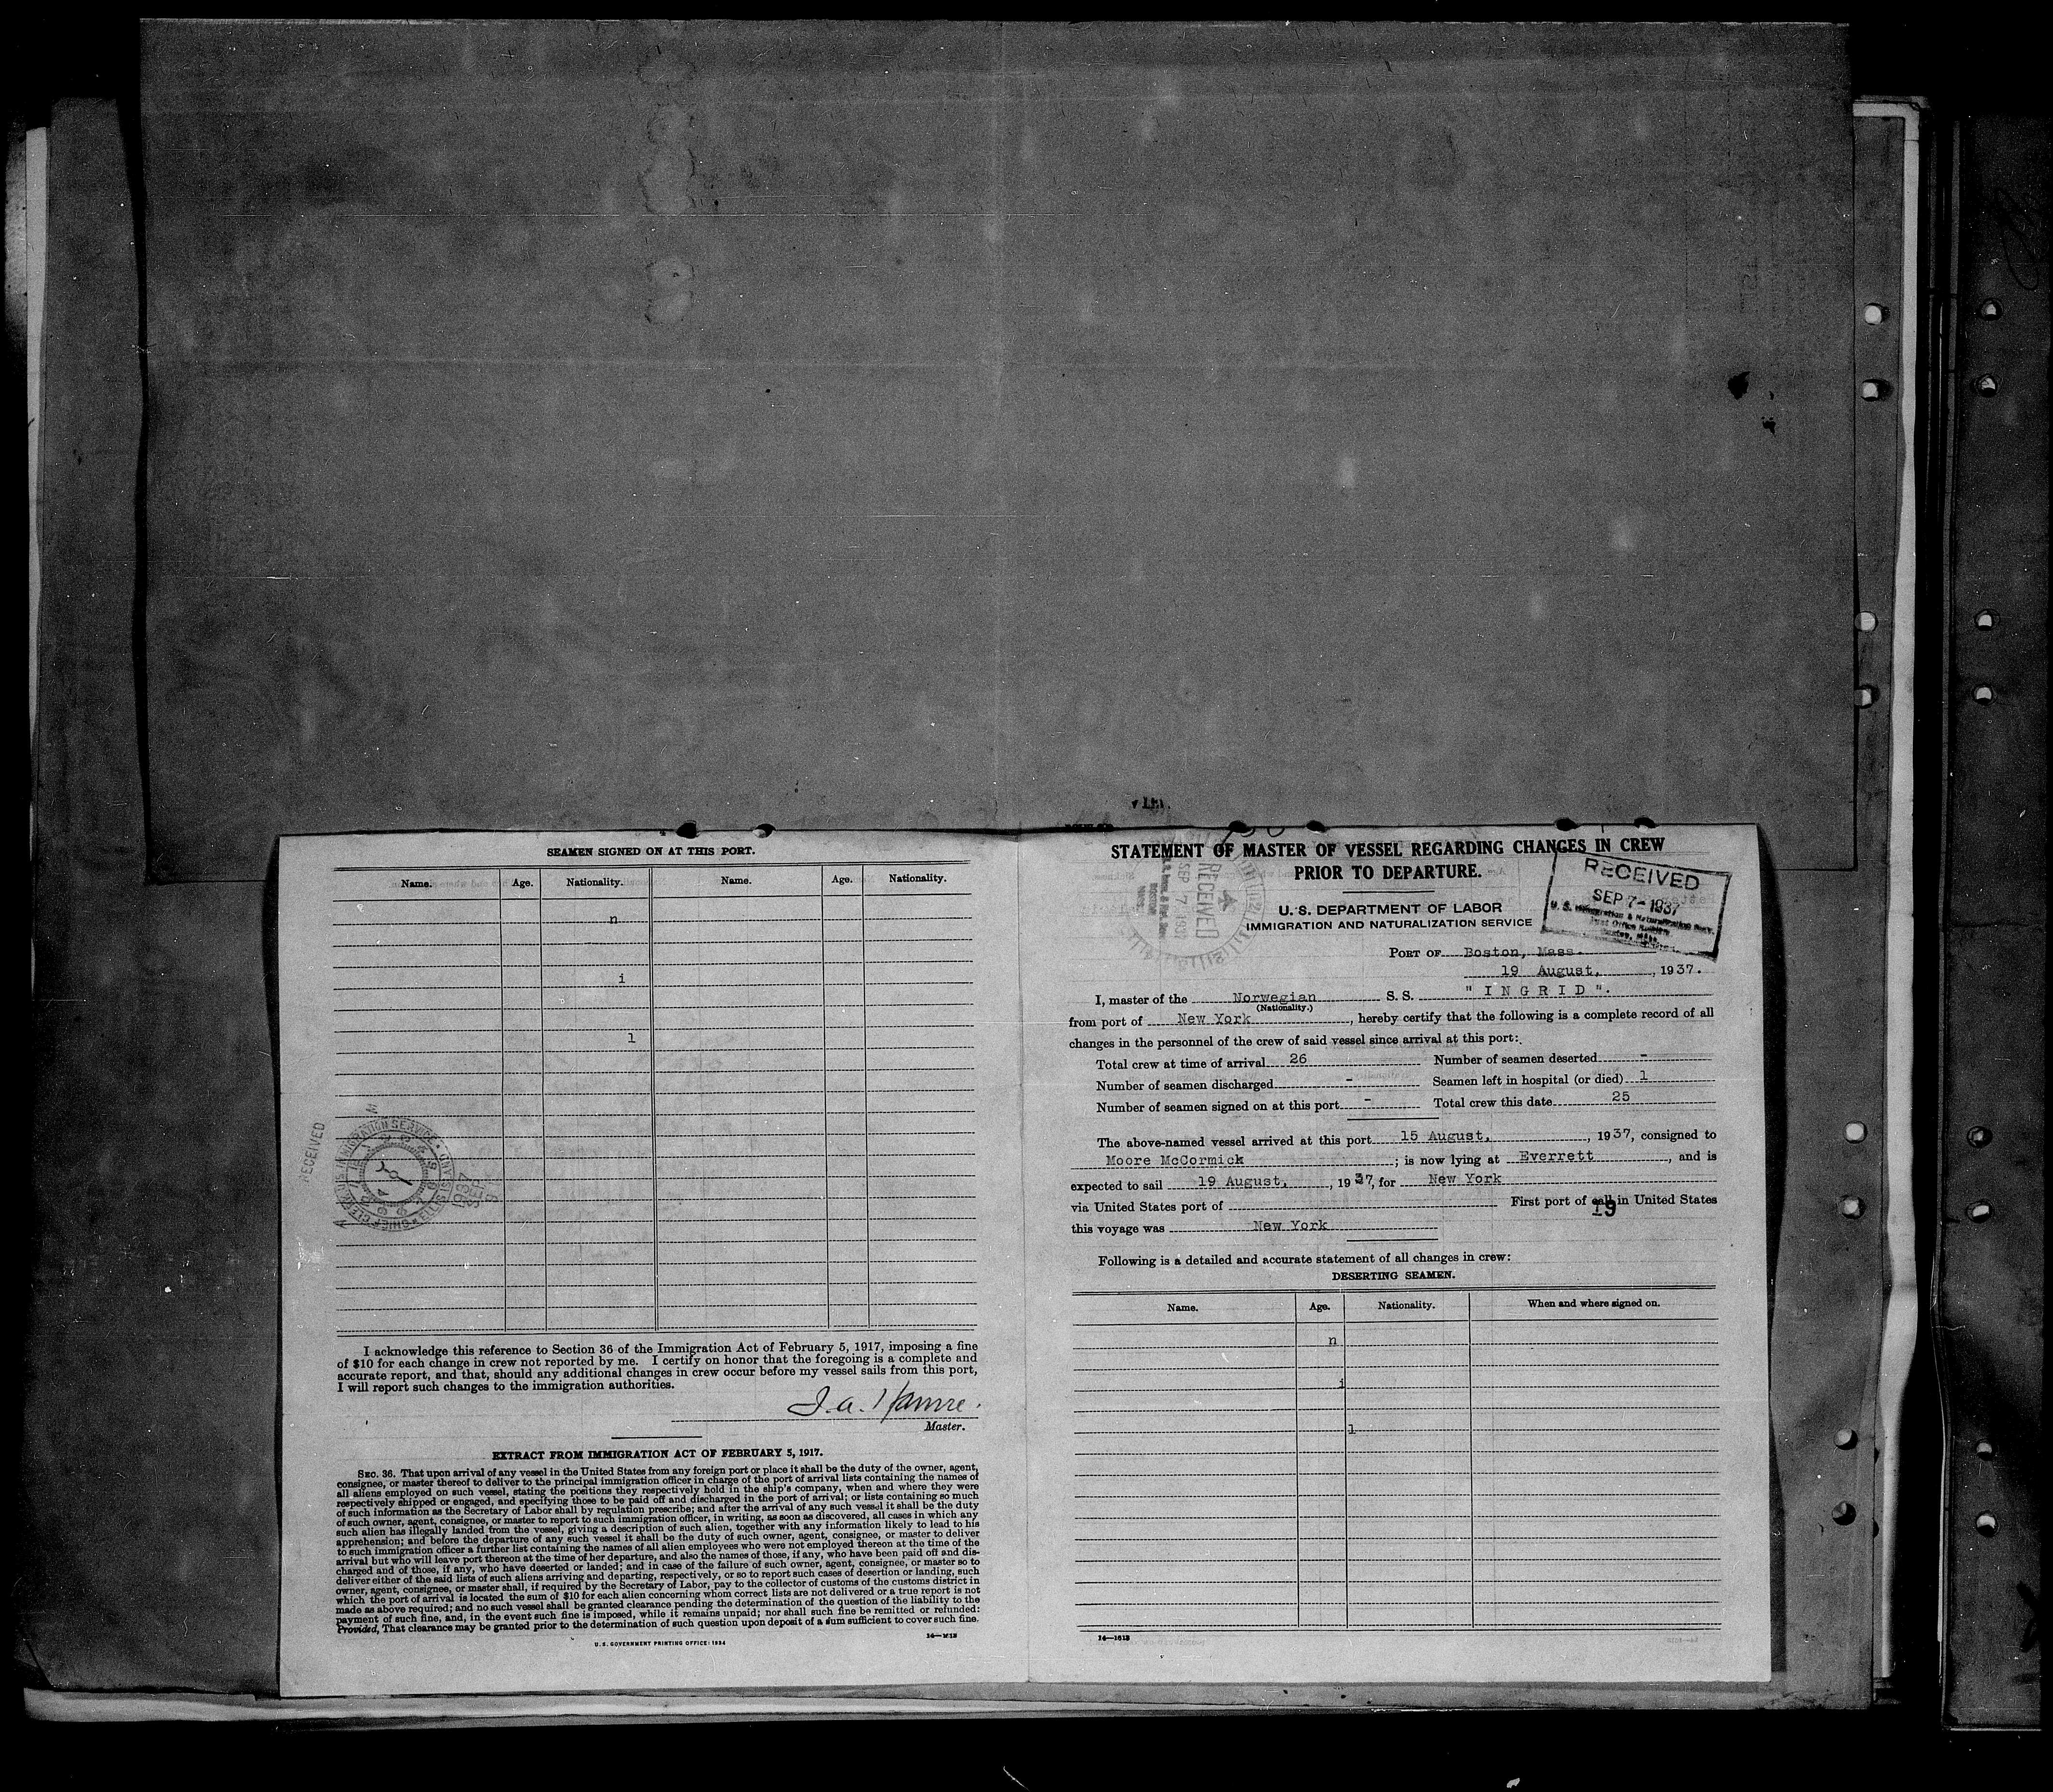 SEAMEN SIGNED ON AT THIS PORT.
Name. Age. Nationality. Name. Age. Nationality.
n
i
l
RECEIVED
I acknowledge this reference to Section 36 of the Immigration Act of February 5, 1917, imposing a fine
of $10 for each change in crew not reported by me. I certify on honor that the foregoing is a complete and
accurate report, and that, should any additional changes in crew occur before my vessel sails from this port,
I will report such changes to the immigration authorities.
Master.
EXTRACT FROM IMMIGRATION ACT OF FEBRUARY 5, 1917.
SEC. 36. That upon arrival of any vessel in the United States from any foreign port or place it shall be the duty of the owner, agent,
consignee, or master thereof to deliver to the principal immigration officer in charge of the port of arrival lists containing the names of
all aliens employed on such vessel, stating the positions they respectively hold in the ship's company, when and where they were
respectively shipped or engaged, and specifying those to be paid off and discharged in the port of arrival; or lists containing so much
of such information as the Secretary of Labor shall by regulation prescribe; and after the arrival of any such vessel it shall be the duty
of such owner, agent, consignee, or master to report to such immigration officer, in writing, as soon as discovered, all cases in which any
such alien has illegally landed from the vessel, giving a description of such alien, together with any information likely to lead to his
apprehension; and before the departure of any such vessel it shall be the duty of such owner, agent, consignee, or master to deliver
to such immigration officer a further list containing the names of all alien employees who were not employed thereon at the time of the
arrival but who will leave port thereon at the time of her departure, and also the names of those, if any, who have been paid off and dis-
charged and of those, if any, who have deserted or landed; and in case of the failure of such owner, agent, consignee, or master so to
deliver either of the said lists of such aliens arriving and departing, respectively, or so to report such cases of desertion or landing, such
owner, agent, consignee, or master shall, if required by the Secretary of Labor, pay to the collector of customs of the customs district in
which the port of arrival is located the sum of $10 for each alien concerning whom correct lists are not delivered or a true report is not
made as above required; and no such vessel shall be granted clearance pending the determination of the question of the liability to the
payment of such fine, and, in the event such fine is imposed, while it remains unpaid; nor shall such fine be remitted or refunded:
Provided, That clearance may be granted prior to the determination of such question upon deposit of a sum sufficient to cover such fine.
U. S. GOVERNMENT PRINTING OFFICE: 1934
STATEMENT OF MASTER OF VESSEL REGARDING CHANGES IN CREW
PRIOR TO DEPARTURE.
RECEIVED
SEP 7-1937
U. S. DEPARTMENT OF LABOR
IMMIGRATION AND NATURALIZATION SERVICE
PORT OF Boston, Mass.
19 August, , 1937.
I, master of the Norwegian S. S. "INGRID".
(Nationality.)
from port of New York , hereby certify that the following is a complete record of all
changes in the personnel of the crew of said vessel since arrival at this port:
Total crew at time of arrival 26 Number of seamen deserted -
Number of seamen discharged - Seamen left in hospital (or died) 1
Number of seamen signed on at this port - Total crew this date 25
The above-named vessel arrived at this port 15 August, , 1937, consigned to
Moore McCormick ; is now lying at Everrett , and is
expected to sail 19 August, , 1937, for New York
via United States port of First port of call in United States
19
this voyage was New York
Following is a detailed and accurate statement of all changes in crew:
DESERTING SEAMEN.
Name. Age. Nationality. When and where signed on.
n
i
l
14—1613